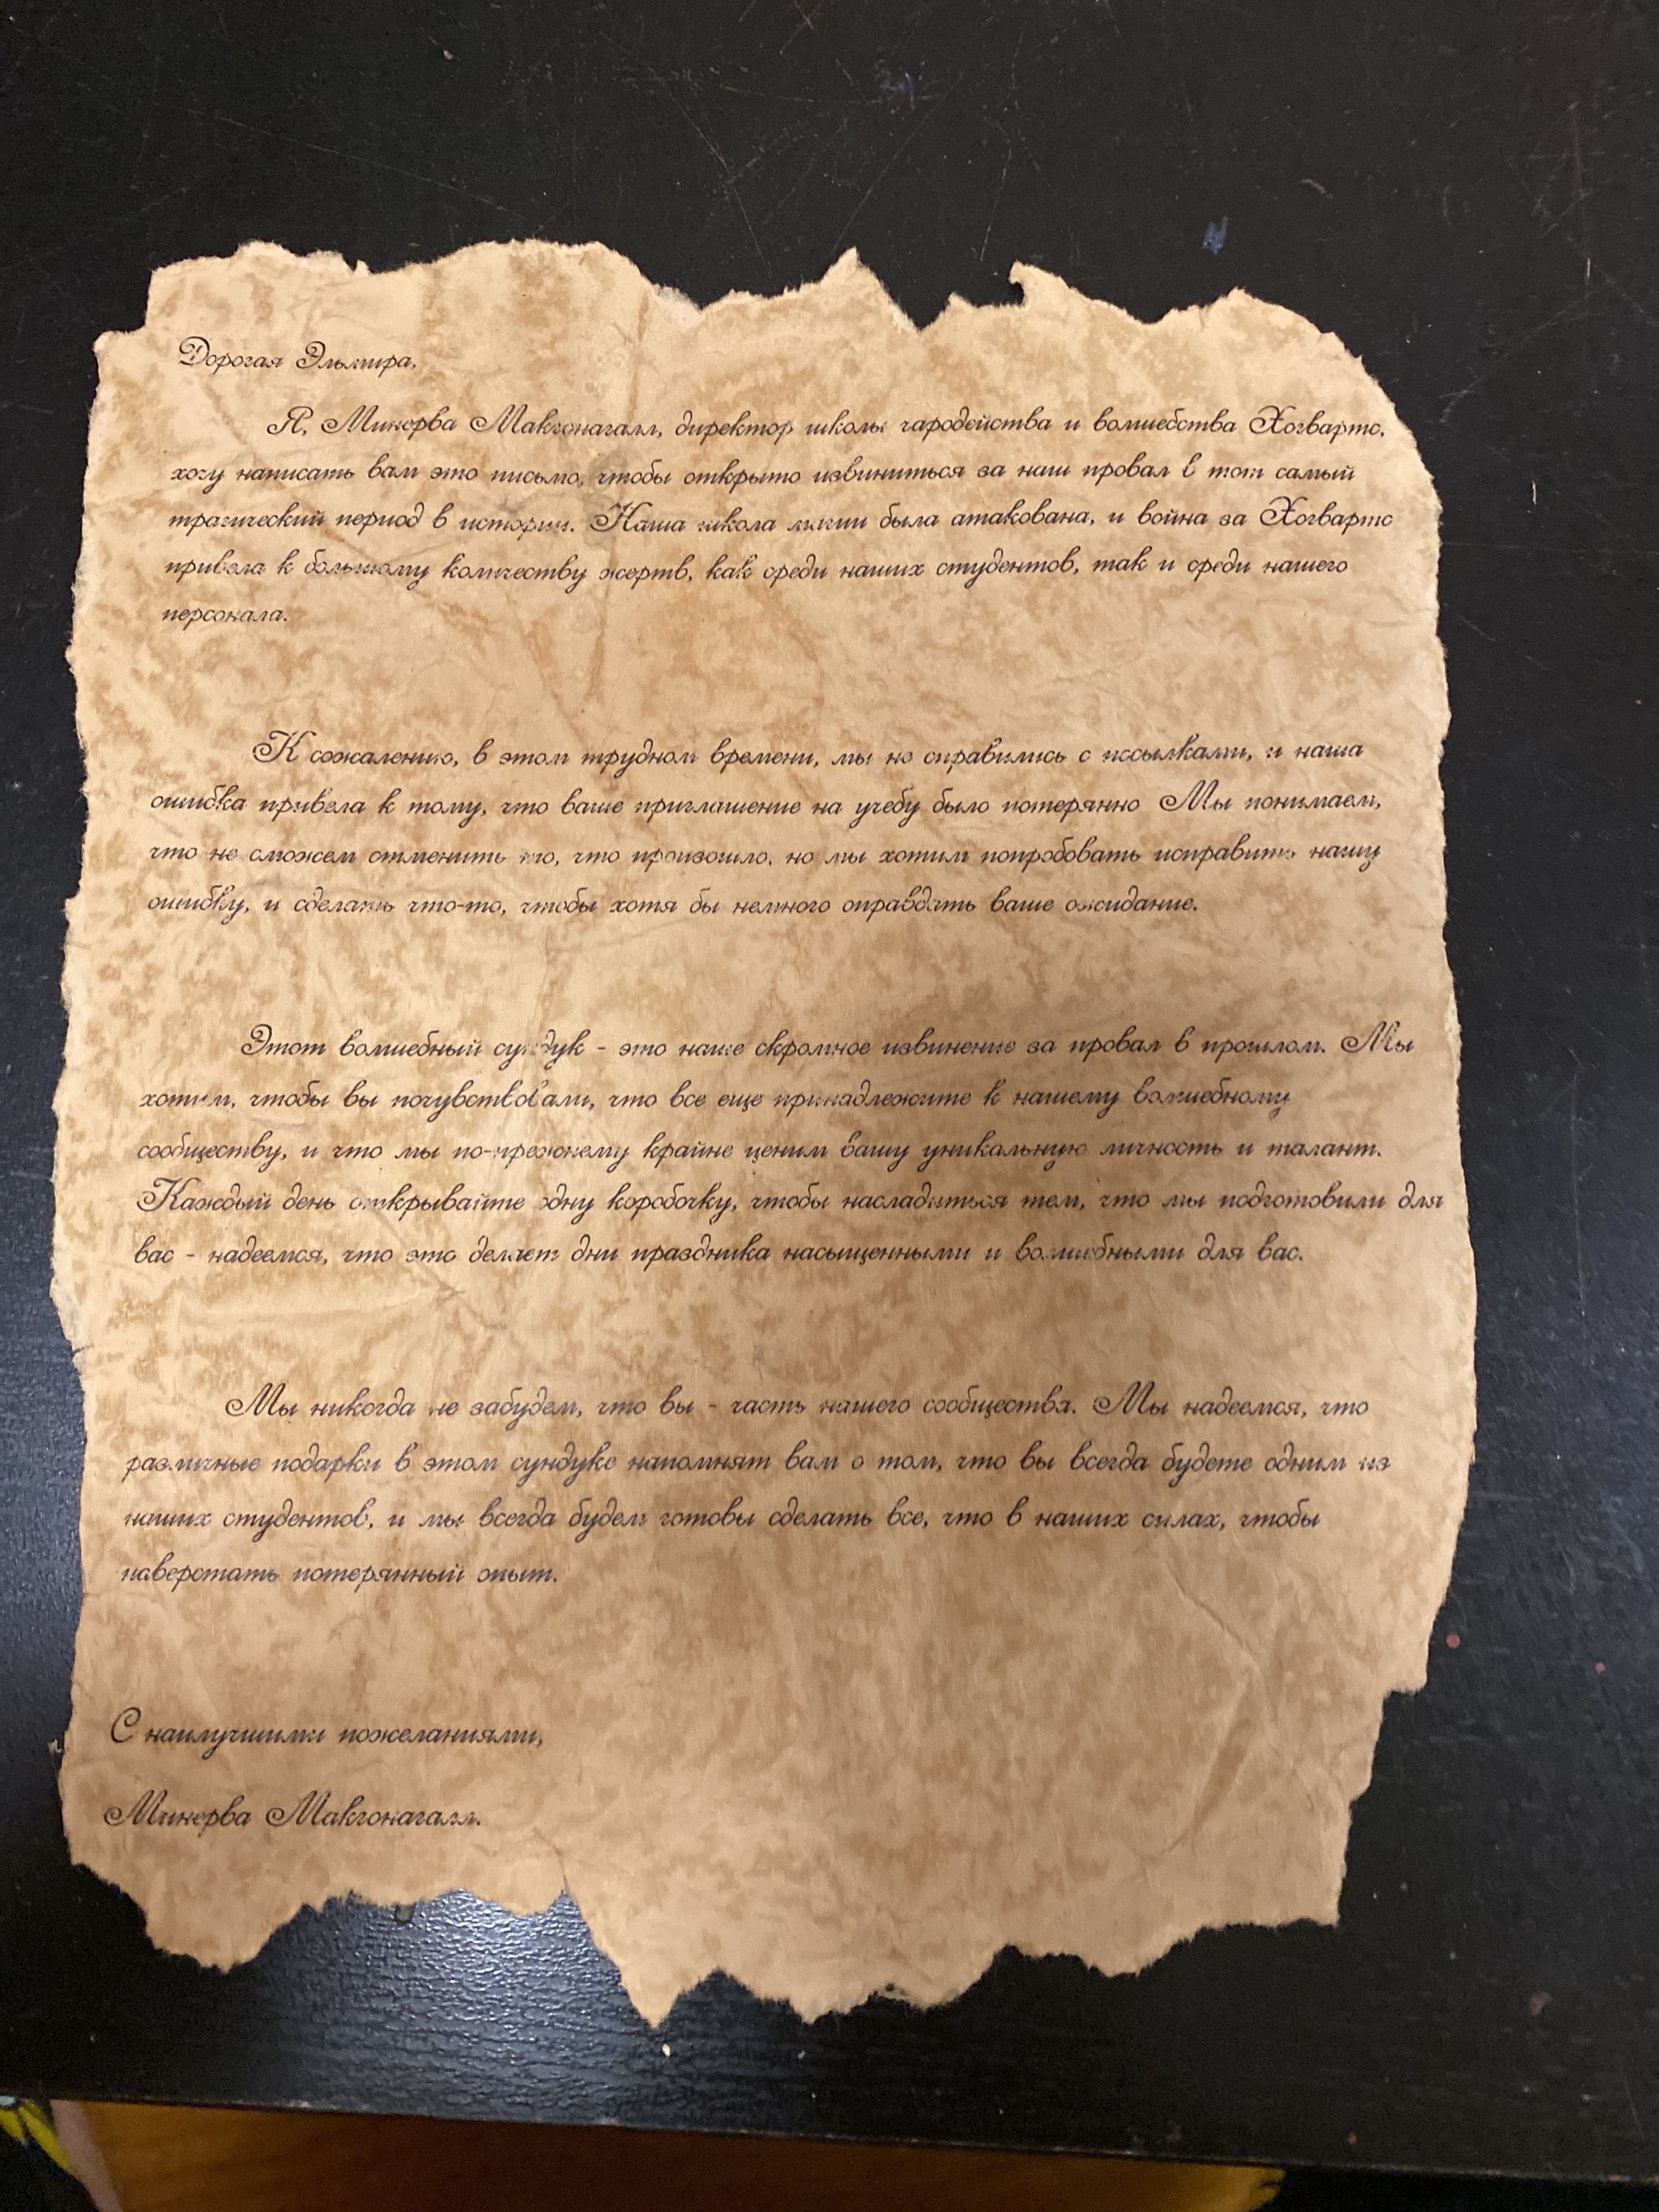 Дорогая Эльмира,
Я, Минерва Макгонагалл, директор школы чародейства и волшебства Хогвартс,
хочу написать вам это письмо, чтобы открыто извиниться за наш провал в тот самый
трагический период в истории. Наша школа магии была атакована, и война за Хогвартс
привела к большому количеству жертв, как среди наших студентов, так и среди нашего
персонала.
К сожалению, в этом трудном времени, мы не справились с посылками, и наша
ошибка привела к тому, что ваше приглашение на учебу было потерянно Мы понимаем,
что не сможем отменить то, что произошло, но мы хотим попробовать исправить нашу
ошибку, и сделать что-то, чтобы хотя бы немного оправдать ваше ожидание.
Этот волшебный сундук - это наше скромное извинение за провал в прошлом. Мы
хотим, чтобы вы почувствовали, что все еще принадлежите к нашему волшебному
сообществу, и что мы по-прежнему крайне ценим вашу уникальную личность и талант.
Каждый день открывайте одну коробочку, чтобы насладиться тем, что мы подготовили для
вас - надеемся, что это делает дни праздника насыщенными и волшебными для вас.
Мы никогда не забудем, что вы - часть нашего сообщества. Мы надеемся, что
различные подарки в этом сундуке напомнят вам о том, что вы всегда будете одним из
наших студентов, и мы всегда будем готовы сделать все, что в наших силах, чтобы
наверстать потерянный опыт.
С наилучшими пожеланиями,
Минерва Макгонагалл.